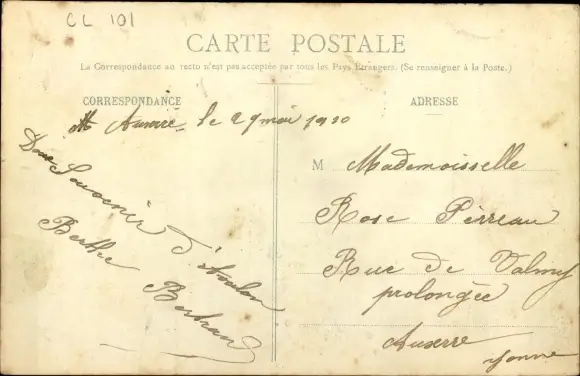 CL 101
CARTE POSTALE
La Correspondance au recto n'est pas acceptée par tous les Pays Étrangers. (Se renseigner à la Poste.)
CORRESPONDANCE
le 29 mai 1910
Doux Souvenir d'Avalon
Berthe Bertrand
ADRESSE
M Mademoisselle
Rose Pérreau
Rue de Valmy
prolongée
Auxerre
Yonne